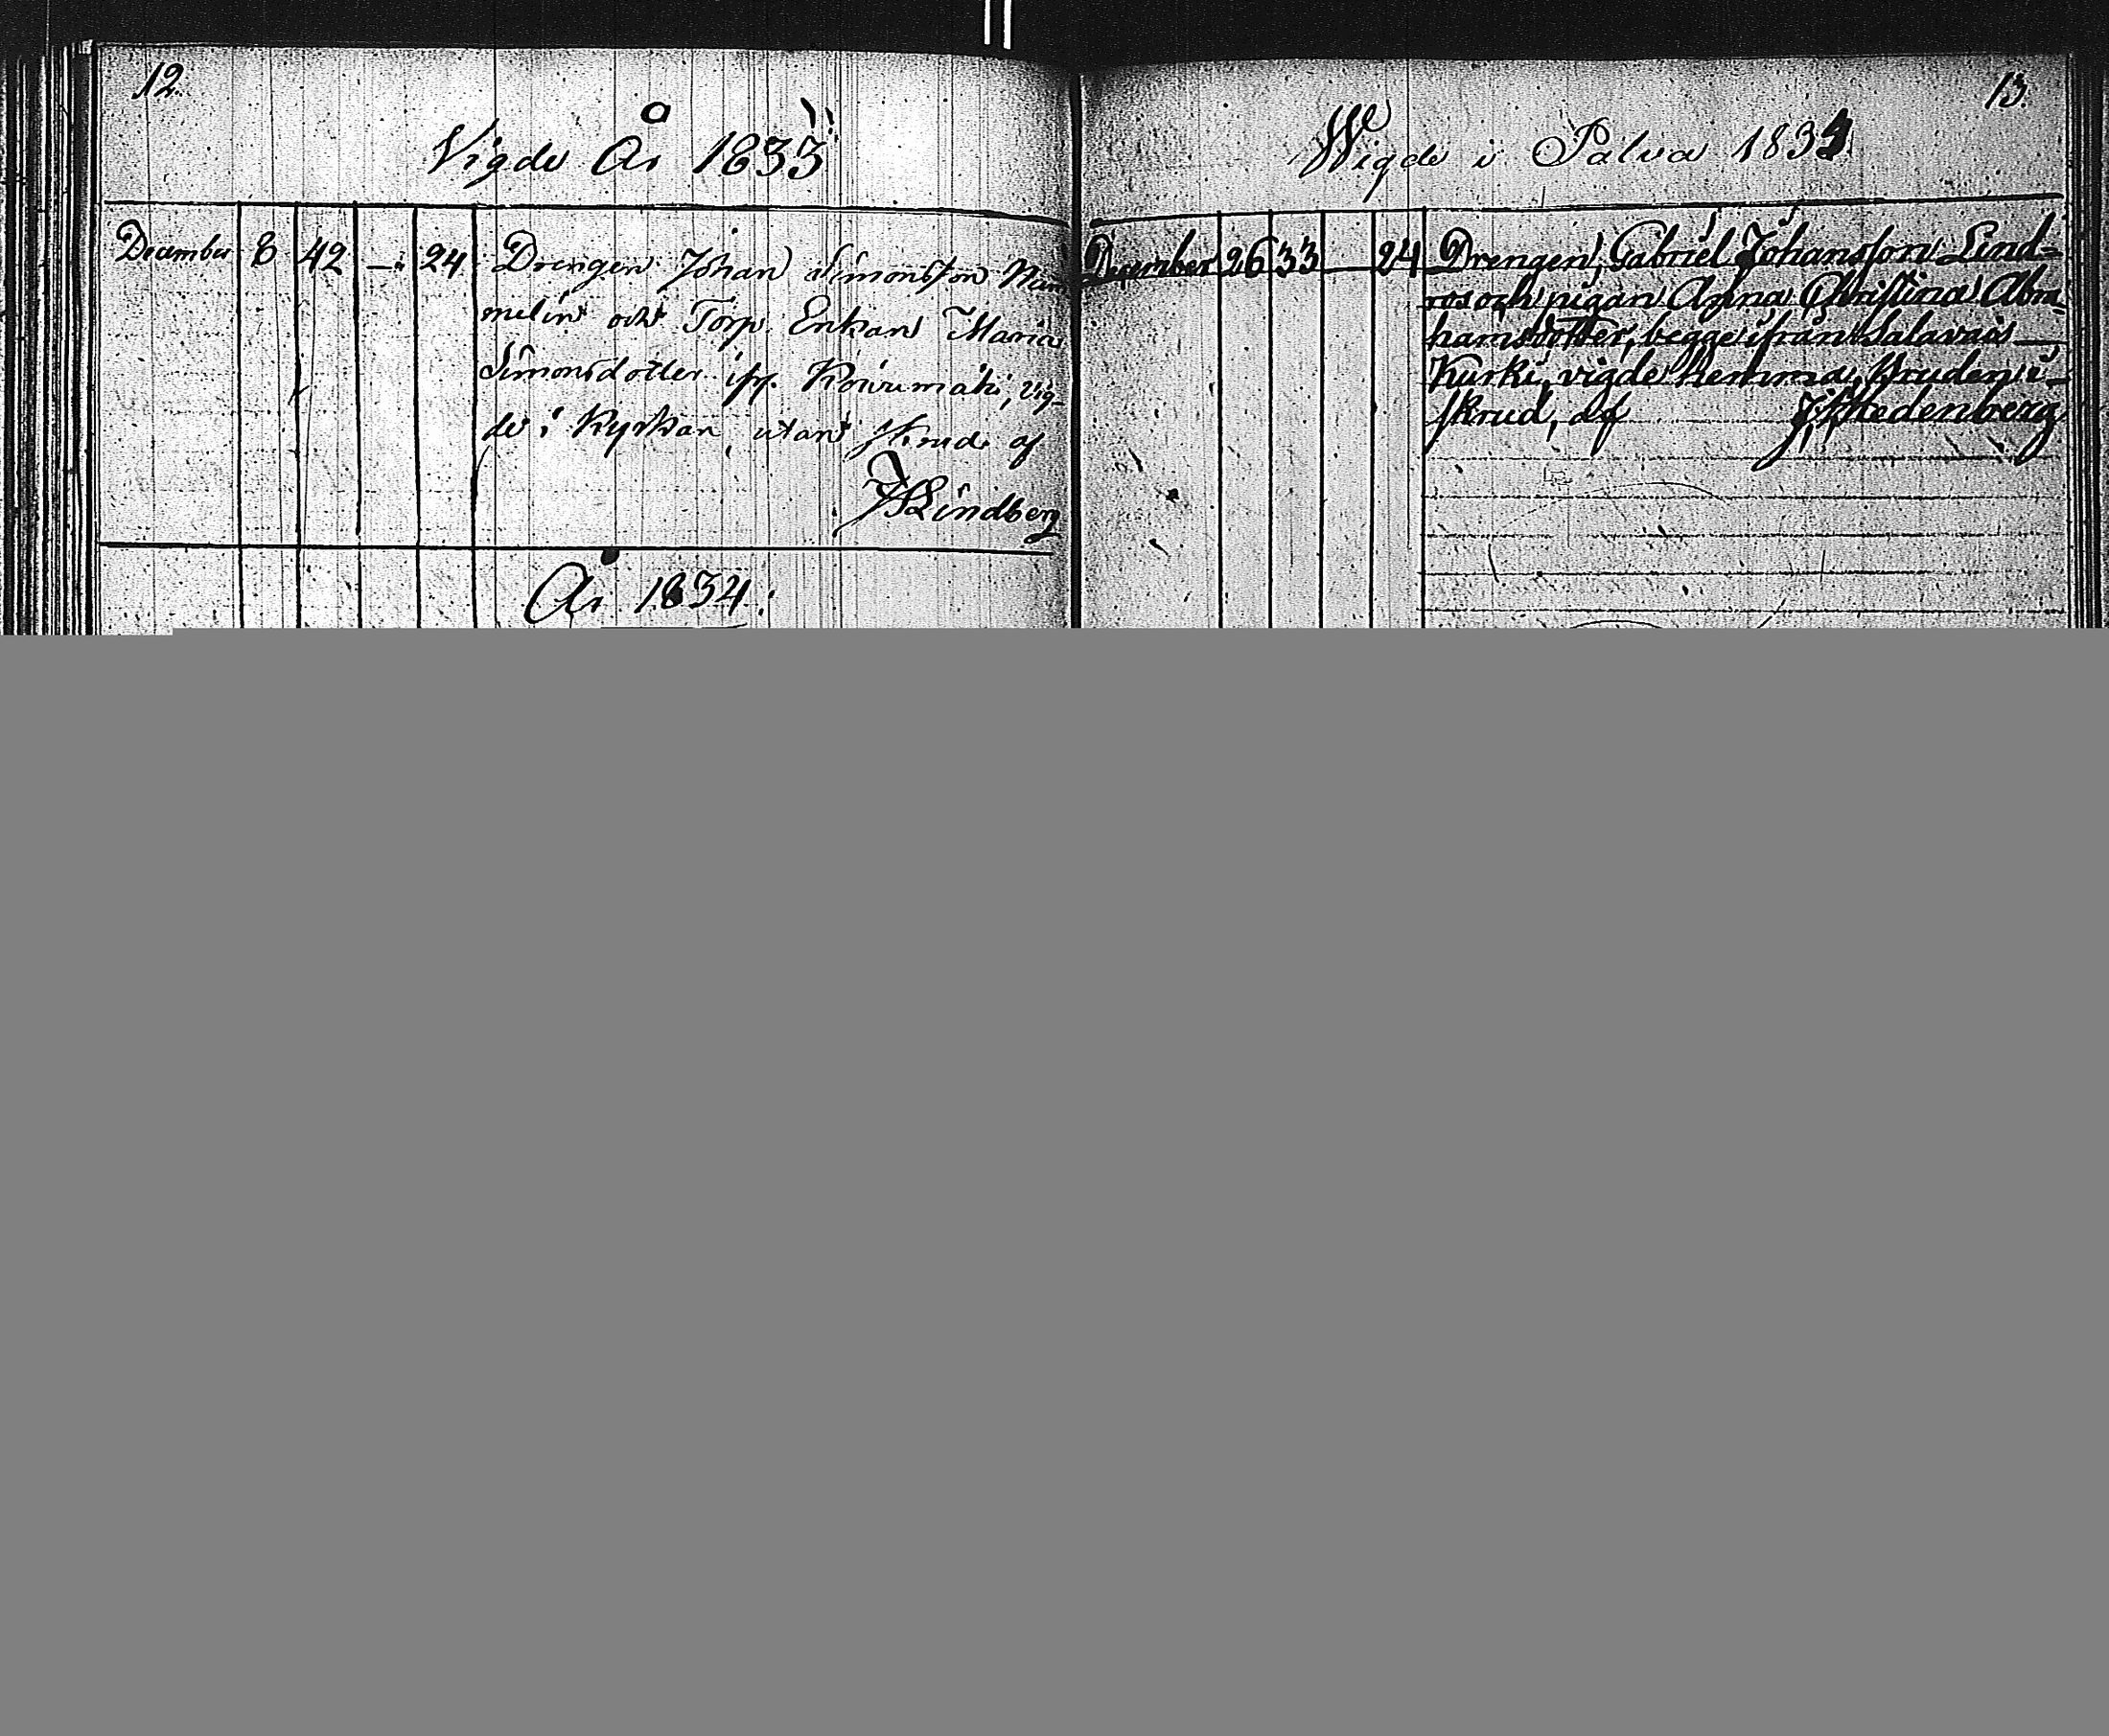 12.
Vigde År 1833
December 8 42 — 24 Drengen Johan Simonsson Num
melin och Torp Enkan Maria
Simonsdotter ifr. Koivumäki, vig-
de i Kyrkan, utan skrud af
Lindberg
År 1834.
13.
Wigde i Palva 1834
December 26 33 — 24 Drengen, Gabriel Johansson Lind-
ros och pigan Anna Christina Abra-
hamsdotter, begge ifrån Salavais
Kurki, vigde hemma, Bruden i
skrud, af Hedenberg